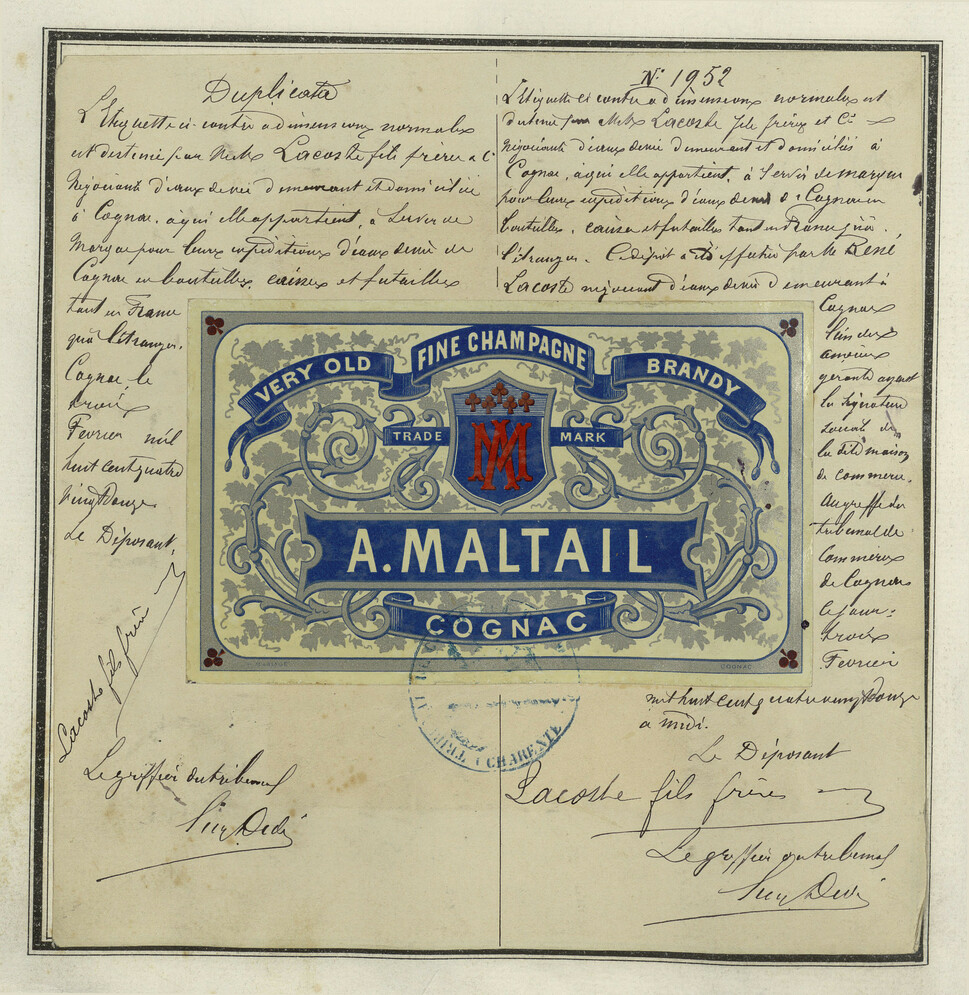 Duplicata
L'Etiquette ci-contre a dimensions normales
est destinée par MM. Lacoste fils frères & Cie
Négociants d'eaux de vie demeurant et domiciliés
à Cognac, à qui elle appartient, à servir de
Marque pour leurs expéditions d'eaux de vie de
Cognac en bouteilles, caisses et futailles
tant en France
qu'à l'étranger.
Cognac, le
trois
Février mil
huit cent quatre
vingt douze
Le Déposant,
Lacoste fils frères
Le greffier du tribunal
N° 1952
L'Etiquette ci contre a dimensions normales est
destinée par MM. Lacoste fils frères et Cie
négociants d'eaux de vie demeurant et domiciliés à
Cognac, à qui elle appartient, à servir de marque
pour leurs expéditions d'eaux de vie de Cognac en
bouteilles, caisses et futailles tant en France qu'à
l'étranger. Ce dépôt a été effectué par M. René
Lacoste négociant d'eaux de vie demeurant à
Cognac
l'un des
gérants ayant
la signature
sociale de
la dite maison
de commerce,
au greffe du
tribunal de
Commerce
de Cognac
ce jour
trois
Février
mil huit cent quatre vingt douze
à midi.
Le Déposant
Lacoste fils frères
Le greffier du tribunal
VERY OLD FINE CHAMPAGNE BRANDY
TRADE MARK
AM
A. MALTAIL
COGNAC
COGNAC
CHARENTE